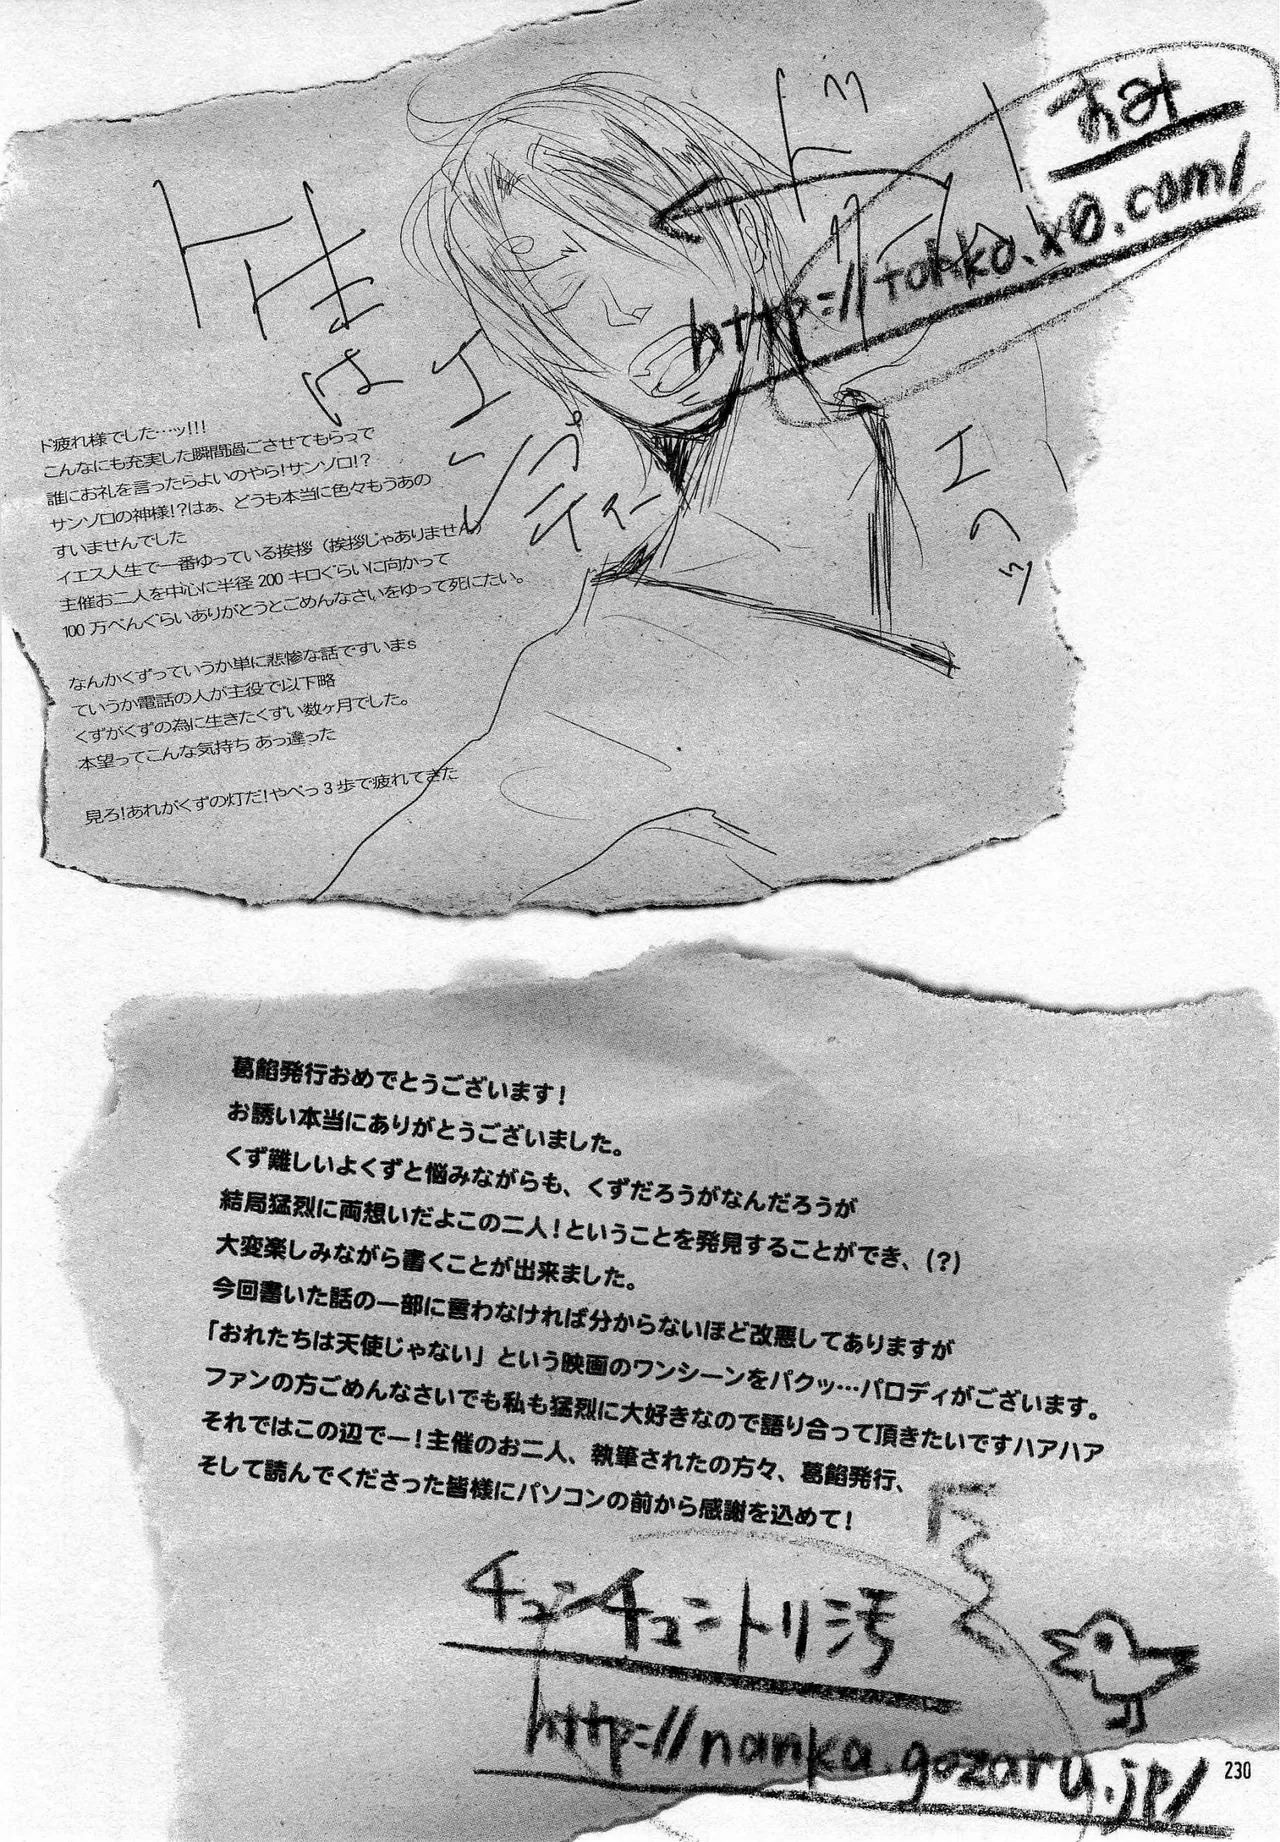 あみ
http://tohko.x0.com/
ド疲れ様でした…ッ!!!
こんなにも充実した瞬間過ごさせてもらって
誰にお礼を言ったらよいのやら!サンゾロ!?
サンゾロの神様!?はぁ、どうも本当に色々もうあの
すいませんでした
イエス人生で一番ゆっている挨拶（挨拶じゃありません）
主催お二人を中心に半径 200 キロぐらいに向かって
100 万べんぐらいありがとうとごめんなさいをゆって死にたい。
なんかくずっていうか単に悲惨な話ですいまs
ていうか電話の人が主役で以下略
くずがくずの為に生きたくずい数ヶ月でした。
本望ってこんな気持ち あっ違った
見ろ!あれがくずの灯だ!やべっ 3 歩で疲れてきた
葛餡発行おめでとうございます!
お誘い本当にありがとうございました。
くず難しいよくずと悩みながらも、くずだろうがなんだろうが
結局猛烈に両想いだよこの二人!ということを発見することができ、(?)
大変楽しみながら書くことが出来ました。
今回書いた話の一部に言わなければ分からないほど改悪してありますが
「おれたちは天使じゃない」という映画のワンシーンをパクッ…パロディがございます。
ファンの方ごめんなさいでも私も猛烈に大好きなので語り合って頂きたいですハアハア
それではこの辺でー!主催のお二人、執筆されたの方々、葛餡発行、
そして読んでくださった皆様にパソコンの前から感謝を込めて!
チュンチュントリ汚
http://nanka.gozaru.jp/
230